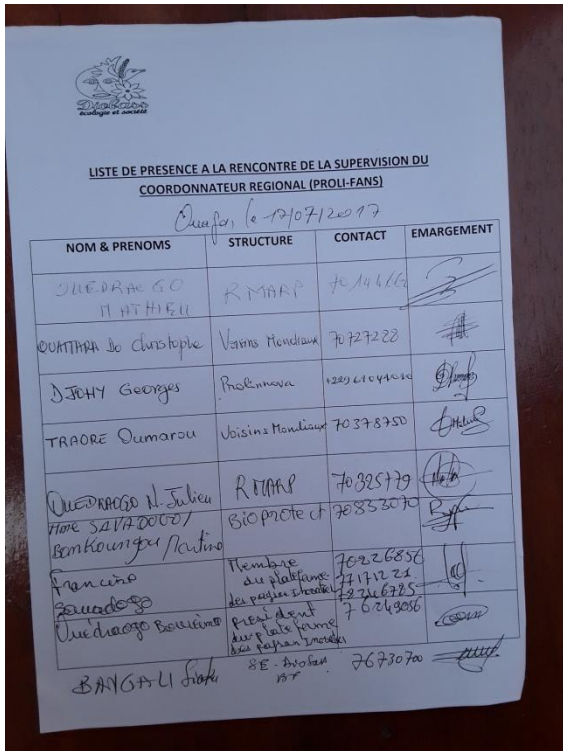 Diobass
écologie et société
LISTE DE PRESENCE A LA RENCONTRE DE LA SUPERVISION DU
COORDONNATEUR REGIONAL (PROLI-FANS)
Ouaga, le 17/07/2017
NOM & PRENOMS STRUCTURE CONTACT EMARGEMENT
OUEDRAOGO
MATHIEU RMARP
OUATTARA Do Christophe Voisins Mondiaux 70727228
DJOHY Georges Prolinnova
TRAORE Oumarou Voisins Mondiaux 70378750
OUEDRAOGO N. Julien RMARP 70325779
Mme SAVADOGO/
Bonkoungou Martine BIOPROTECT 70833070
Francine
Sawadogo
Membre
du plateforme
des paysan
70226856
77171221
78246785
Ouédraogo
président
du plate forme
des paysan
76249056
BAYGALI SE - 76730700